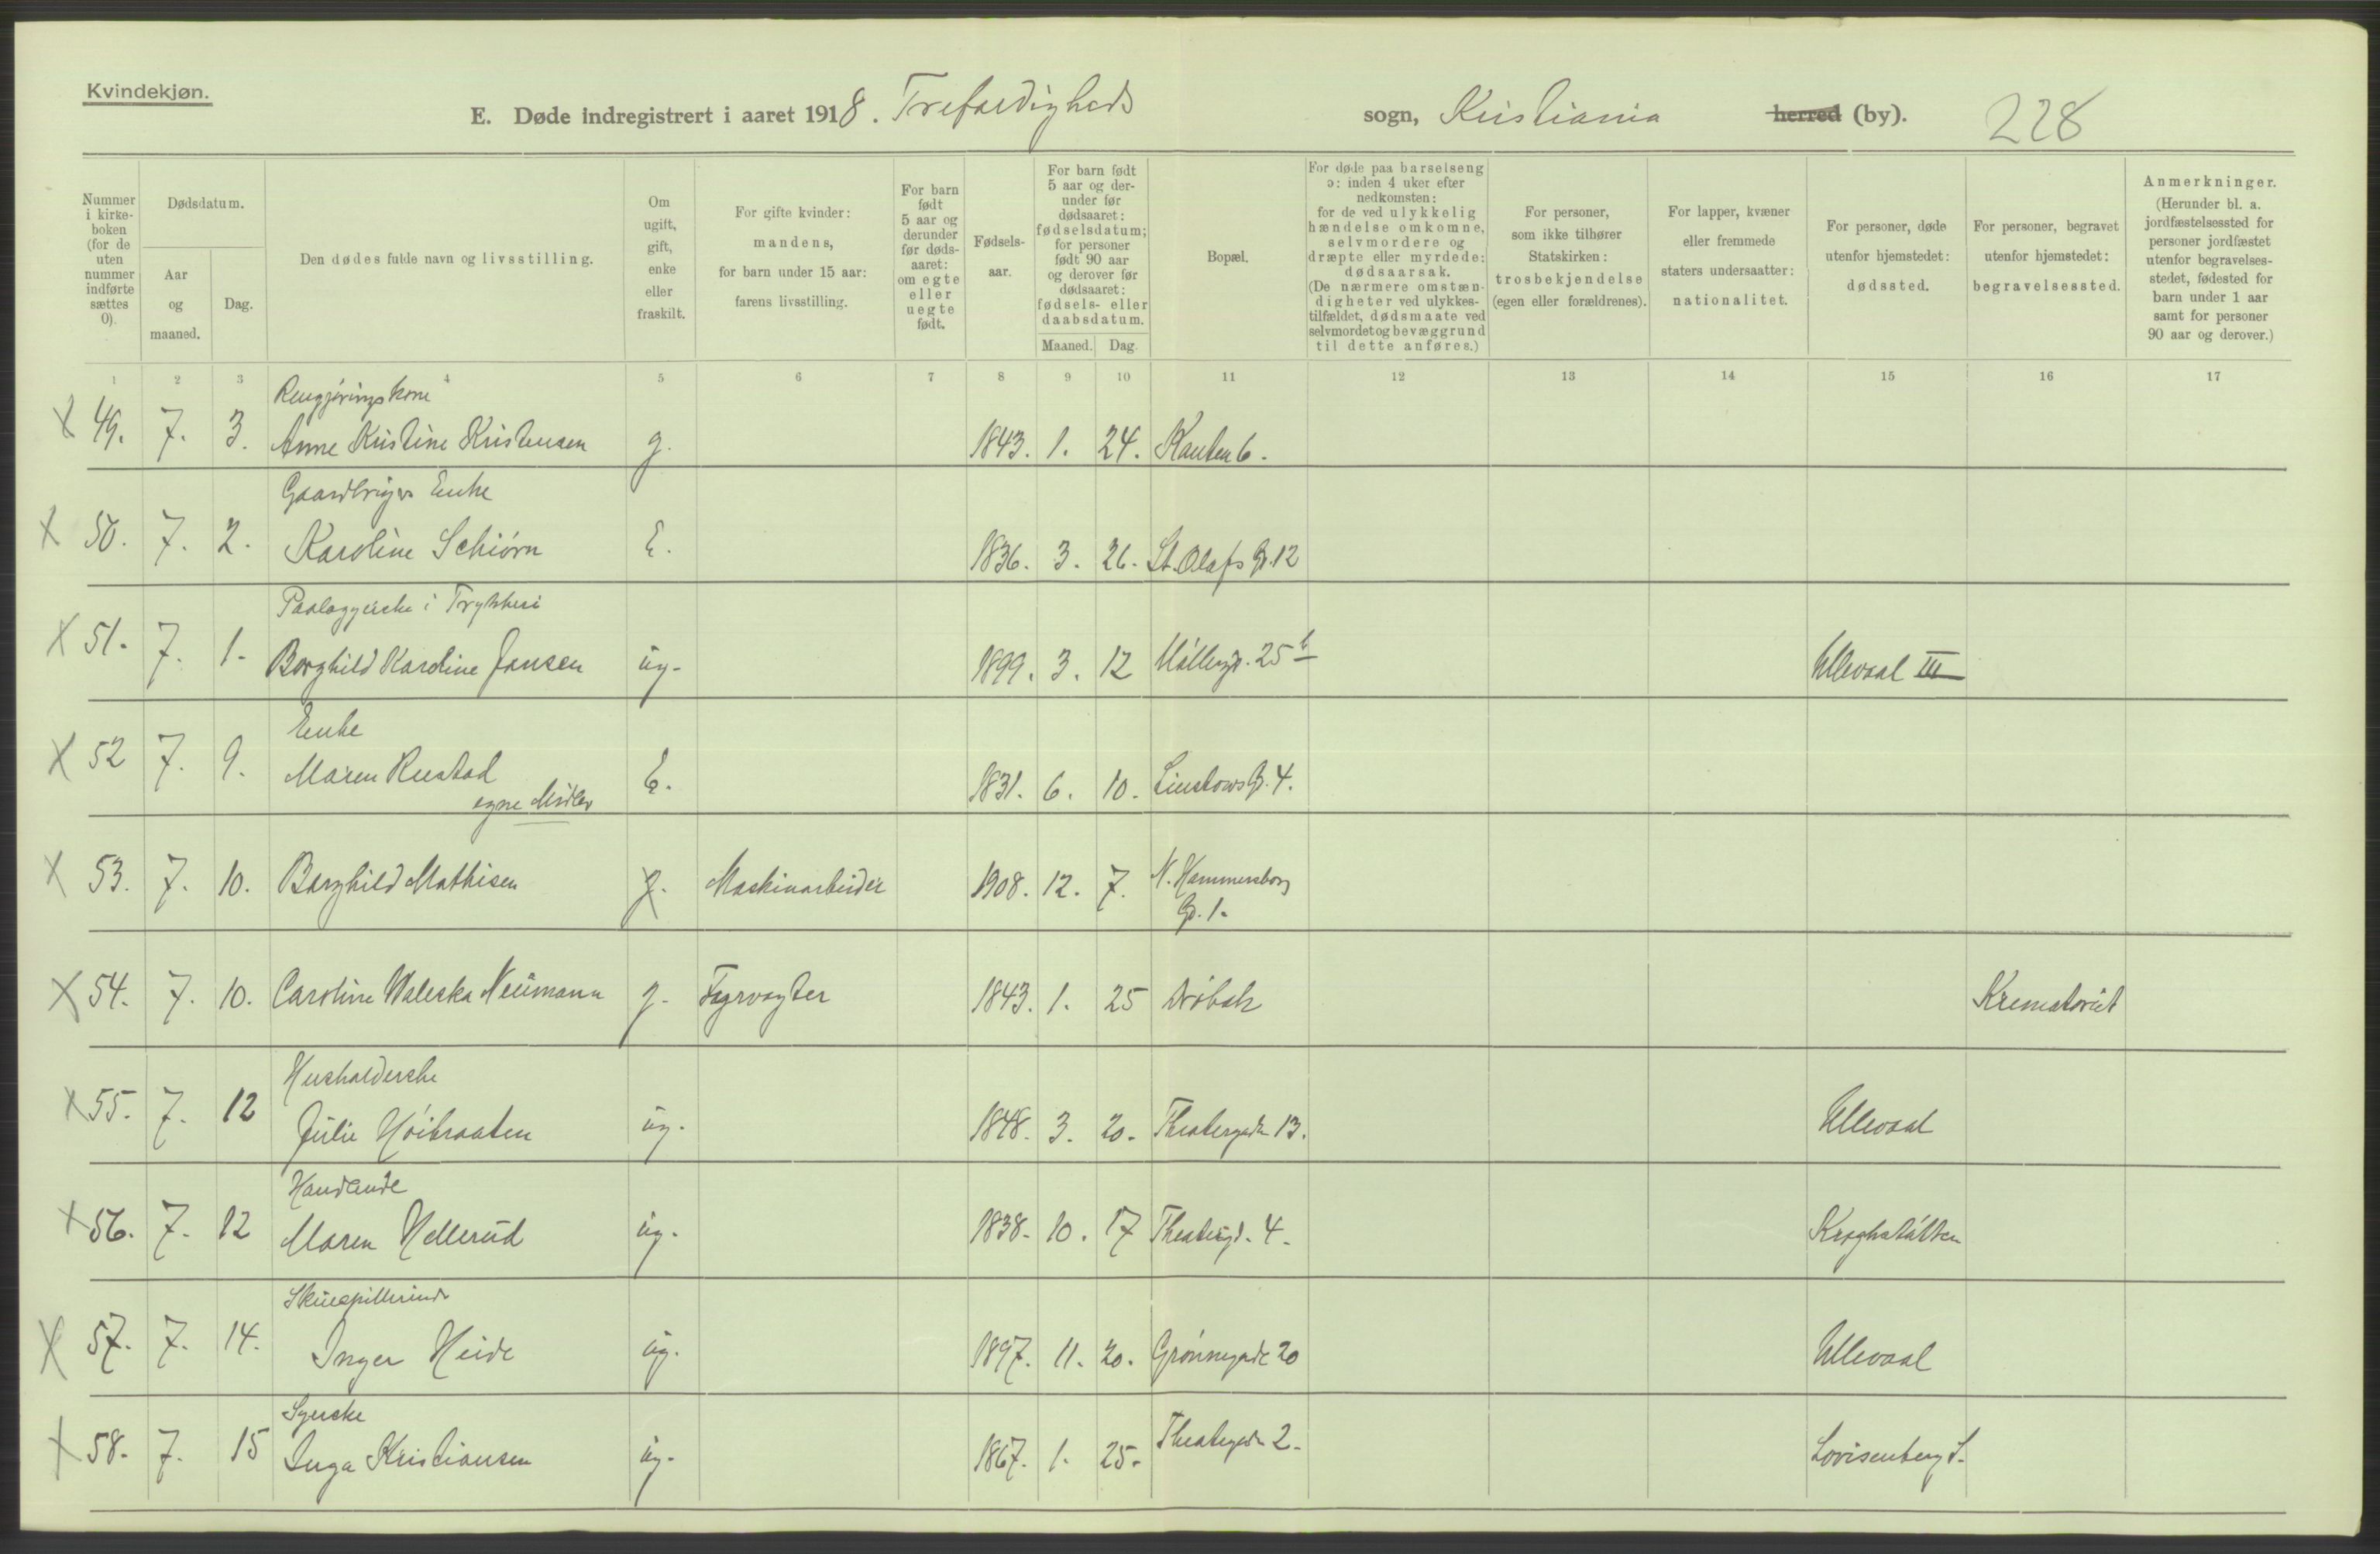 Kvindekjøn.
E. Døde indregistrert i aaret 1918. Trefoldigheds sogn, Kristiania herred (by). 228
Nummer i kirke-boken (for de uten nummer indførte sættes 0).
Dødsdatum.
Aar og maaned.
Dag.
Den dødes fulde navn og livsstilling.
Om ugift, gift, enke eller fraskilt.
For gifte kvinder: mandens, for barn under 15 aar: farens livsstilling.
For barn født 5 aar og derunder før døds-aaret: om egte eller uegte født.
Fødsels-aar.
For barn født 5 aar og der-under før dødsaaret: fødselsdatum; for personer født 90 aar og derover før dødsaaret: fødsels- eller daabsdatum.
Maaned. Dag.
Bopæl.
For døde paa barselseng ɔ: inden 4 uker efter nedkomsten: for de ved ulykkelig hændelse omkomne, selvmordere og dræpte eller myrdede: dødsaarsak. (De nærmere omstæn-digheter ved ulykkes-tilfældet, dødsmaate ved selvmordet og bevæggrund til dette anføres.)
For personer, som ikke tilhører Statskirken: trosbekjendelse (egen eller forældrenes).
For lapper, kvæner eller fremmede staters undersaatter: nationalitet.
For personer, døde utenfor hjemstedet: dødssted.
For personer, begravet utenfor hjemstedet: begravelsessted.
Anmerkninger. (Herunder bl. a. jordfæstelsessted for personer jordfæstet utenfor begravelses-stedet, fødested for barn under 1 aar samt for personer 90 aar og derover.)
1 2 3 4 5 6 7 8 9 10 11 12 13 14 15 16 17
Rengjøringskone
X 49. 7. 3. Anne Kristine Kristensen g. 1843. 1. 24. Kanten 6.
Gaardbrugers Enke
X 50. 7. 2. Karoline Schiørn E. 1836. 3. 26. St. Olafs G. 12
Paalæggerske i Trykkeri
X 51. 7. 1. Borghild Karoline Jansen ug. 1899. 3. 12 Møllergt. 25 b Ullevaal III
Enke
X 52 7. 9. Maren Rustad E. 1831. 6. 10. Linstows G. 4.
egne Midler
X 53. 7. 10. Borghild Mathisen g. Maskinarbeider 1908. 12. 7. N. Hammersborg
G. 1.
X 54. 7. 10. Caroline Waleska Neumann g. Fyrvogter 1843. 1. 25 Drøbak Krematoriet
Husholderske
X 55. 7. 12 Julie Høibraaten ug. 1848. 3. 20. Theatergaden 13. Ullevaal
Handlende
X 56. 7. 12 Maren Hellerud ug. 1838. 10. 17 Theatergd. 4. Kroghstøtten
Skuespillerinde
X 57. 7. 14. Inger Heide ug. 1897. 11. 20. Grønnegade 20 Ullevaal
Syerske
X 58. 7. 15 Inga Kristiansen ug. 1867. 1. 25. Theatergaden 2. Lovisenberg S.